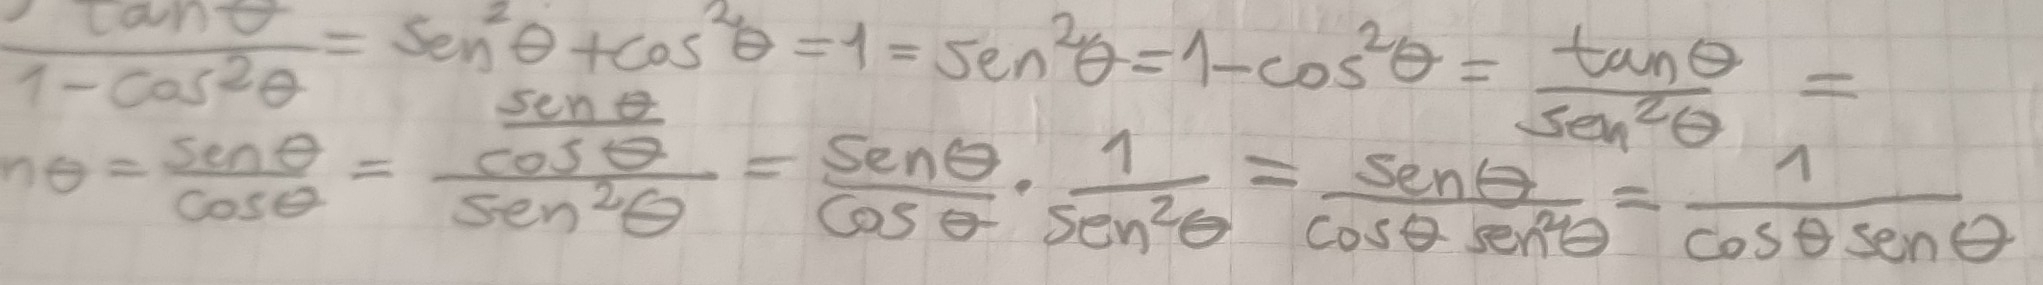 tanθ/(1-cos²θ) = sen²θ+cos²θ = 1 = sen²θ = 1-cos²θ = tanθ/sen²θ =
nθ = senθ/cosθ = (senθ/cosθ)/sen²θ = senθ/cosθ · 1/sen²θ = senθ/(cosθ sen²θ) = 1/(cosθ senθ)